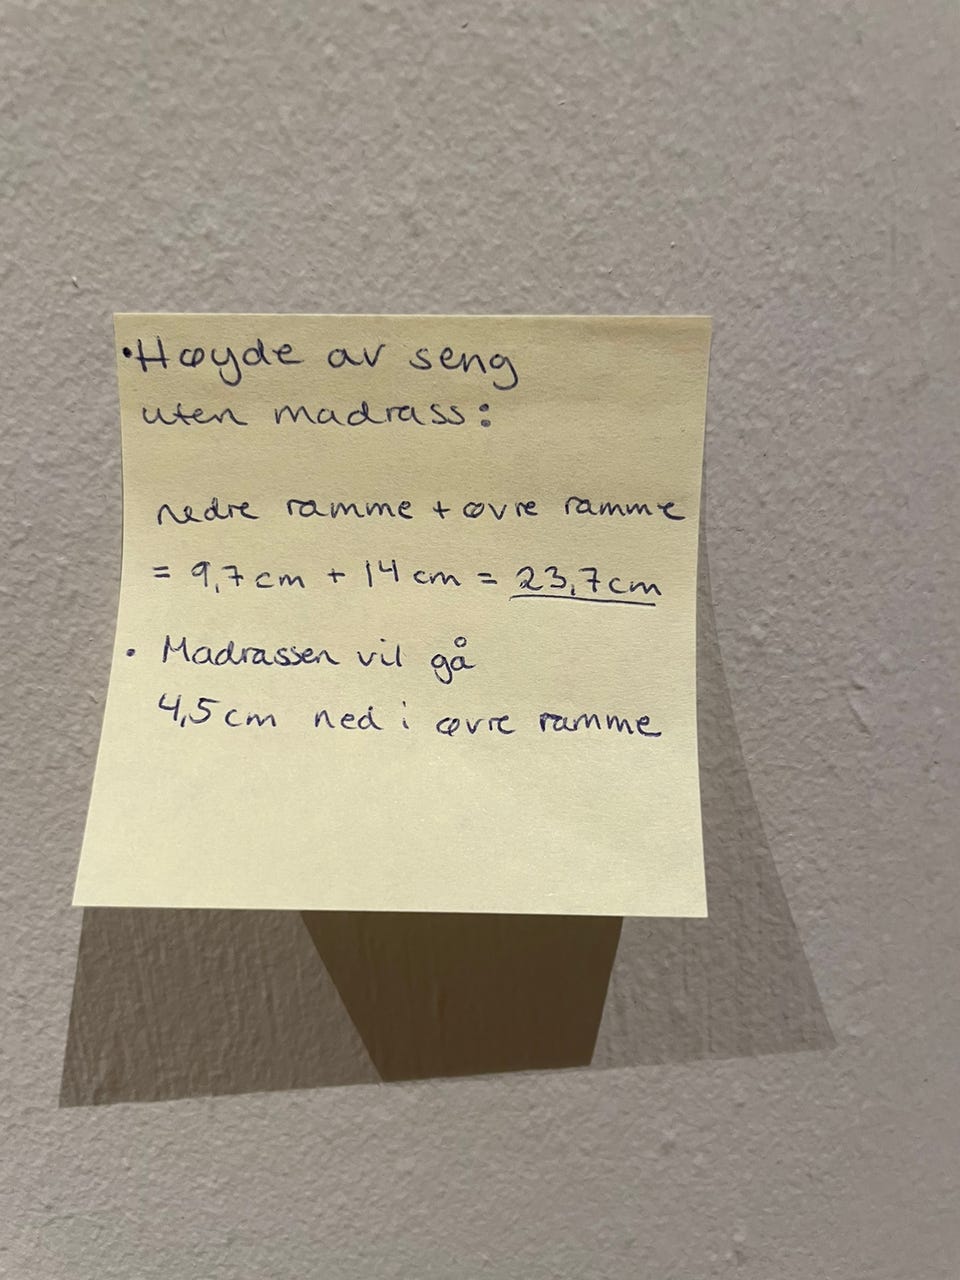 • Høyde av seng
uten madrass:
nedre ramme + øvre ramme
= 9,7 cm + 14 cm = 23,7 cm
• Madrassen vil gå
4,5 cm ned i øvre ramme